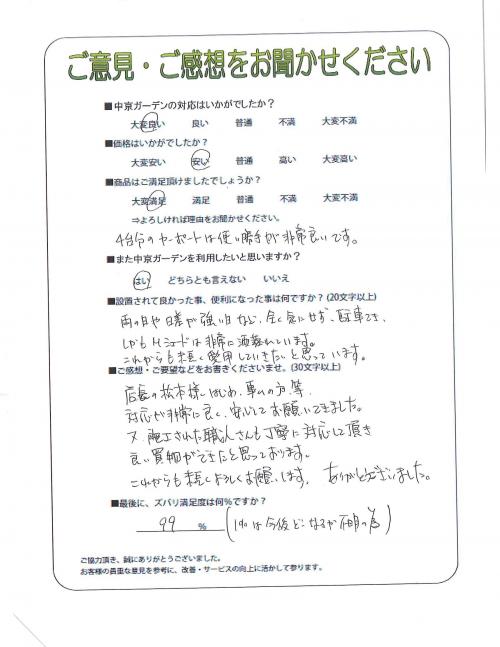 ご意見・ご感想をお聞かせください
■中京ガーデンの対応はいかがでしたか？
大変良い 良い 普通 不満 大変不満
■価格はいかがでしたか？
大変安い 安い 普通 高い 大変高い
■商品はご満足頂けましたでしょうか？
大変満足 満足 普通 不満 大変不満
⇒よろしければ理由をお聞かせください。
4台分のカーポートは使い勝手が非常良いです。
■また中京ガーデンを利用したいと思いますか？
はい どちらとも言えない いいえ
■設置されて良かった事、便利になった事は何ですか？(20文字以上)
雨の日や日差が強い日など、全く気にせず、駐車でき、
しかもMシェードは非常に洒落れています。
これからも末長く愛用していきたいと思っています。
■ご感想・ご要望などをお書きくださいませ。(30文字以上)
店長の松本様はじめ、の方、等、
対応が非常に良く、安心してお願いできました。
又、施工された職人さんも丁寧に対応して頂き
良い買物ができたと思っております。
これからも末長くよろしくお願いします。ありがとうございました。
■最後に、ズバリ満足度は何％ですか？
99 ％ (1%は今後どうなるか不明の為)
ご協力頂き、誠にありがとうございました。
お客様の貴重な意見を参考に、改善・サービスの向上に活かして参ります。